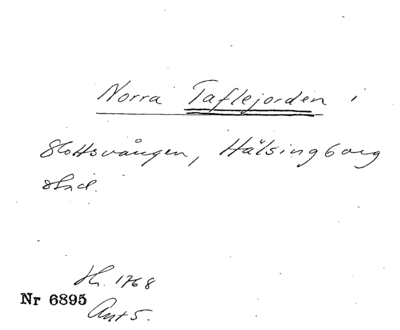 Norra Taflejorden i
Slottsvången, Hälsingborg
stad.
Hr. 1768
Nr 6895
Ant 5.